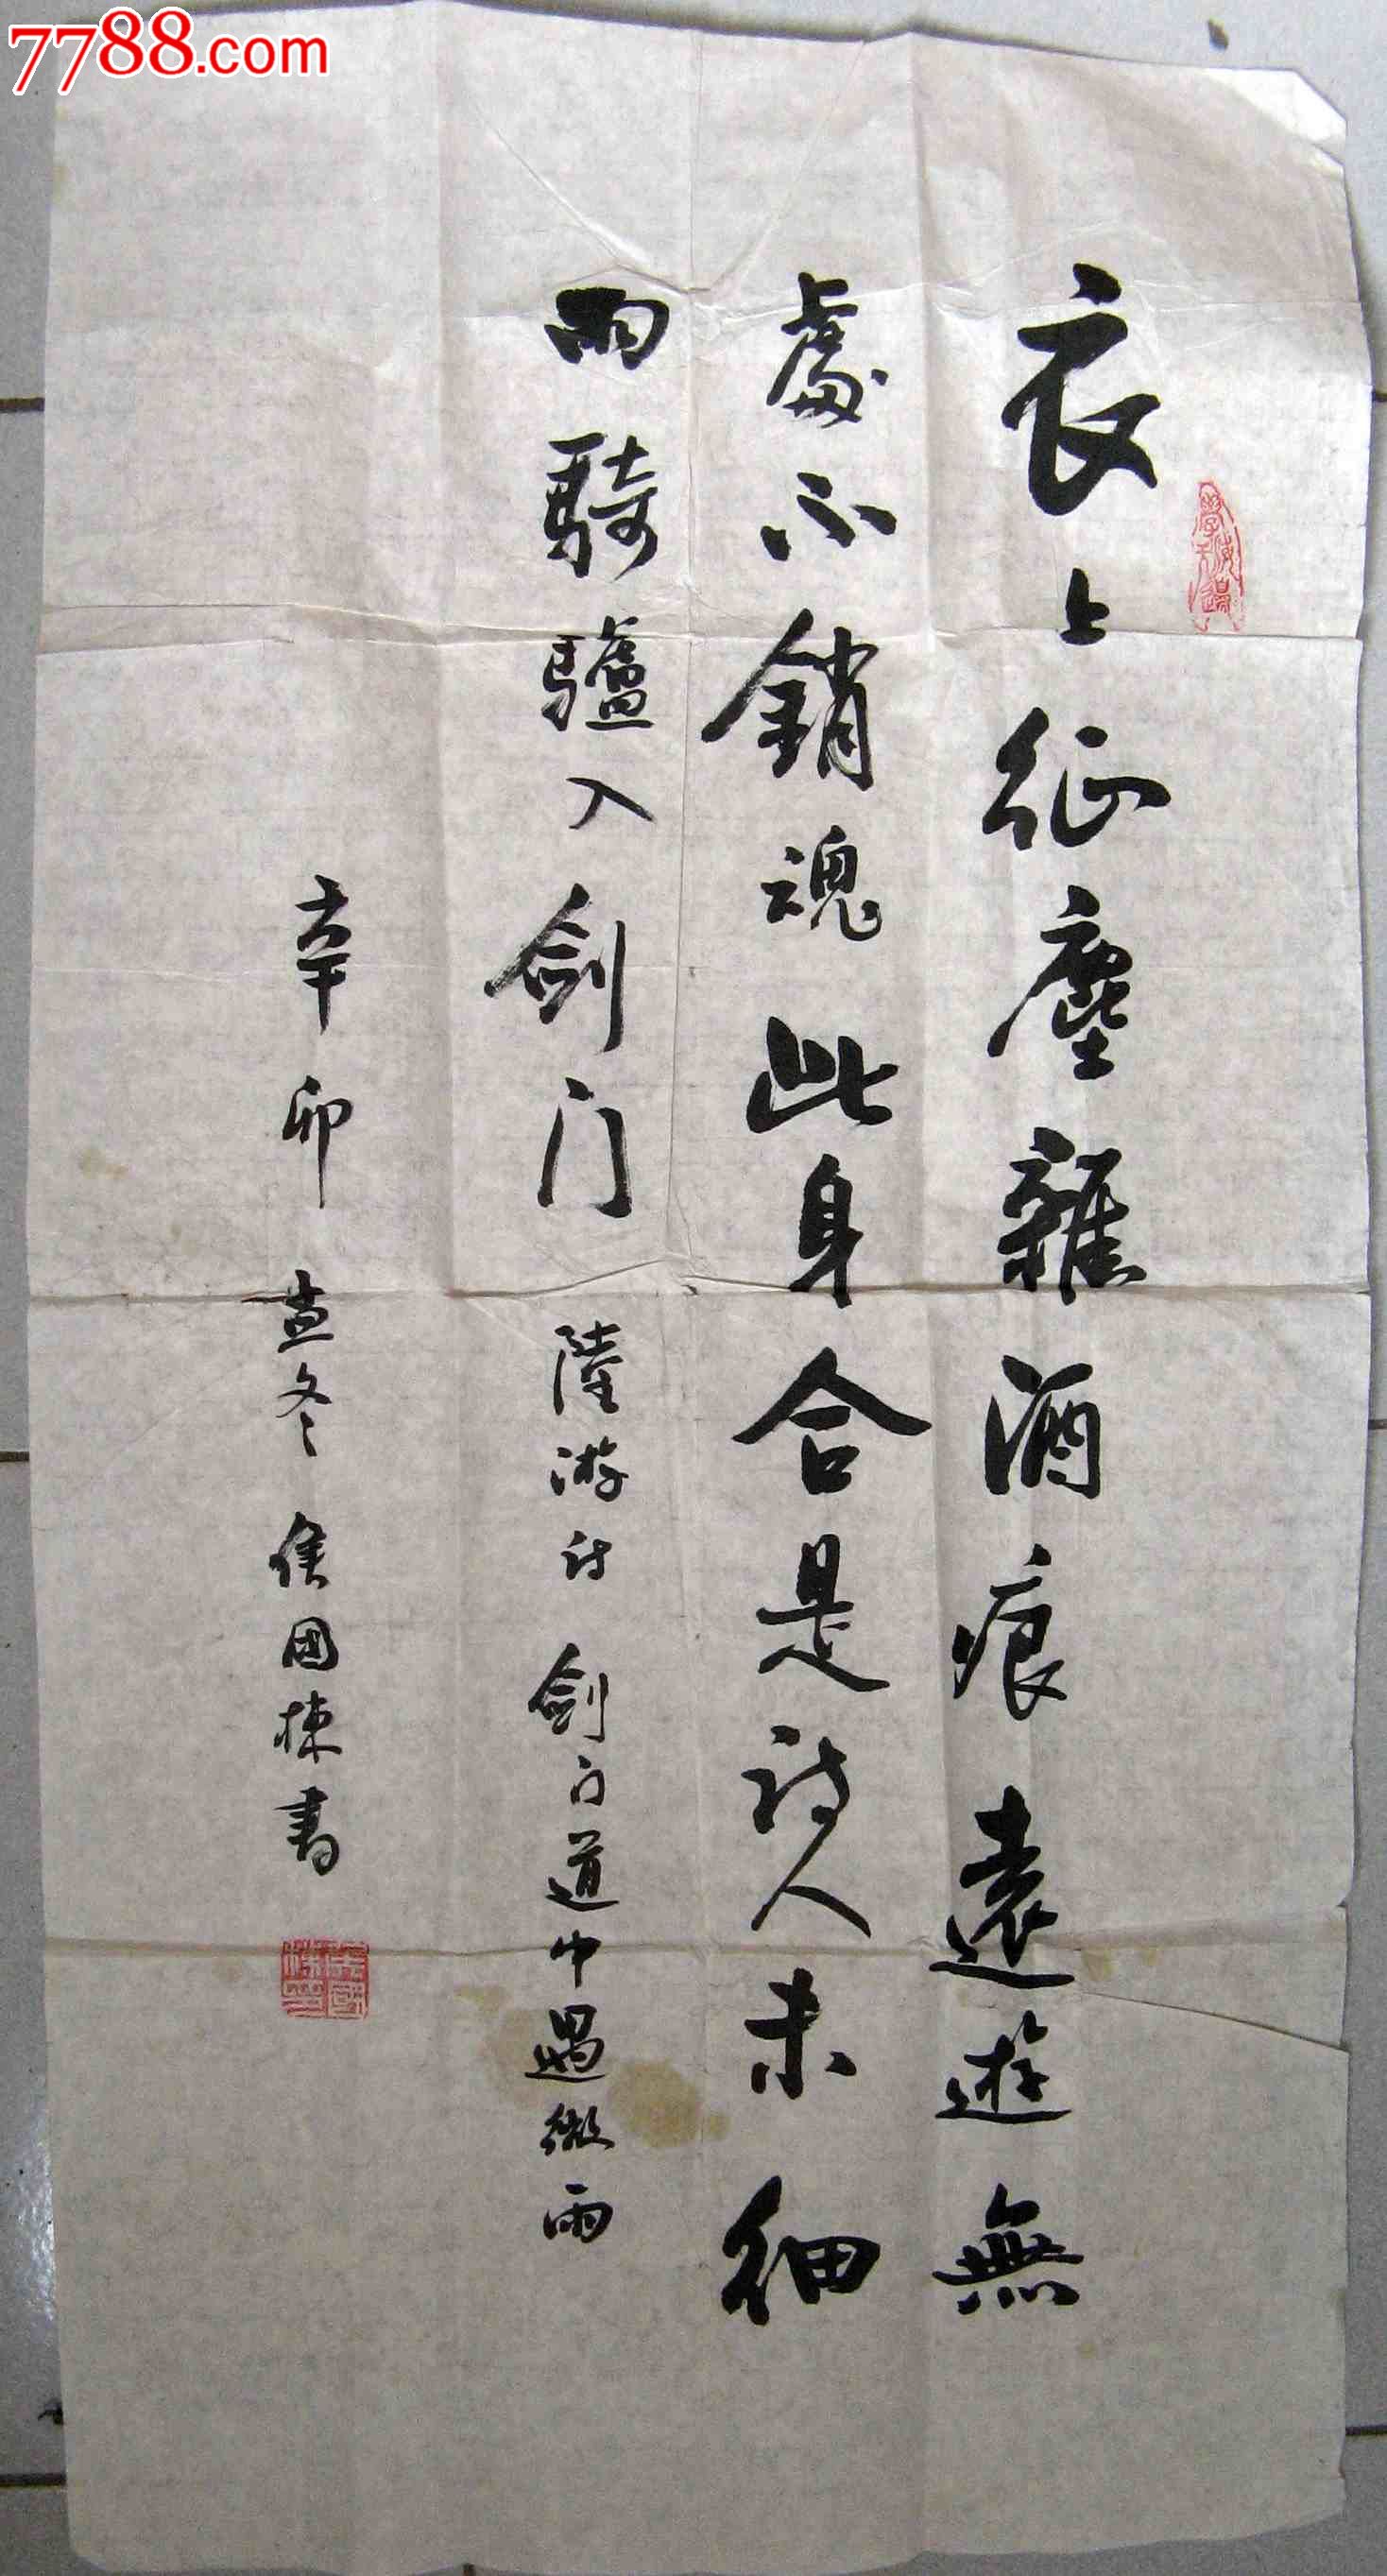 7788.com
衣上征塵雜酒痕遠遊無
處不銷魂此身合是詩人未細
雨騎驢入劍门 陸游诗 劍门道中遇微雨
辛卯 孟冬 侯國棟書